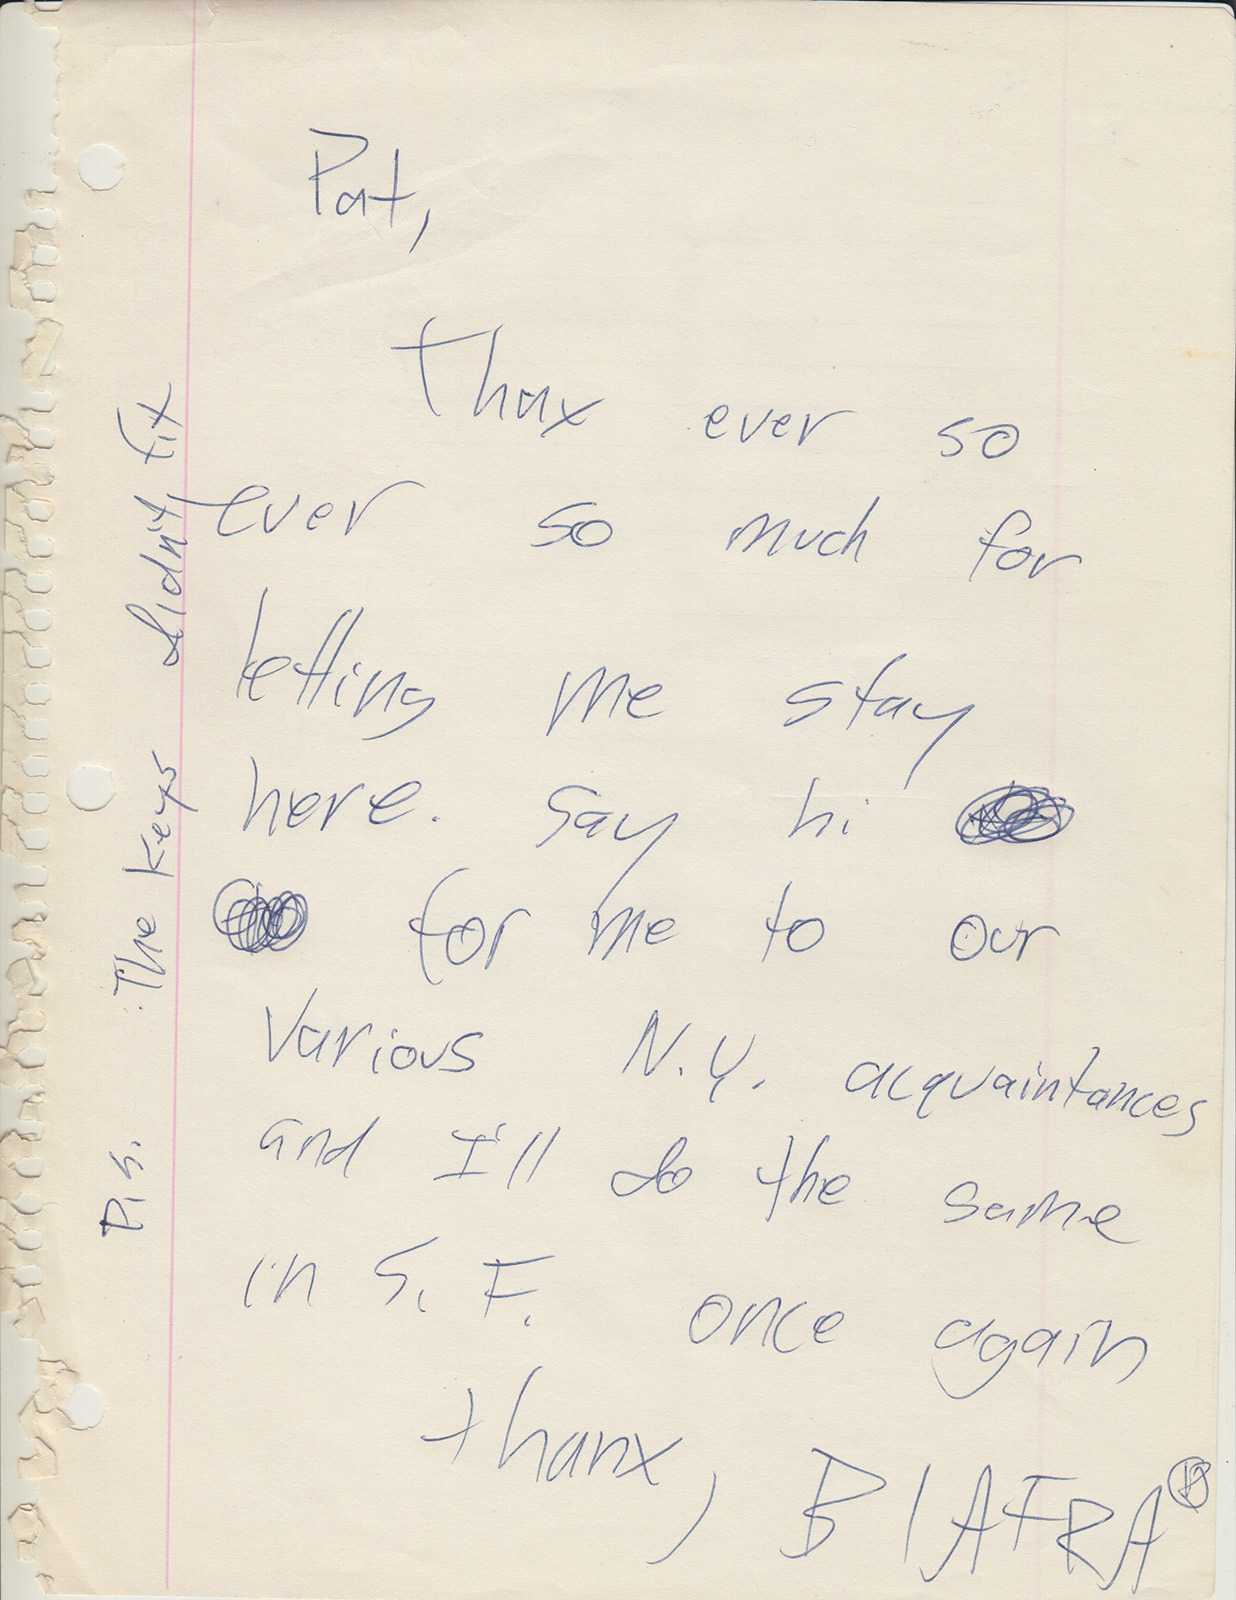 Pat,
Thax ever so
ever so much for
letting me stay
here. Say hi
for me to our
various N.Y. acquaintances
and I'll do the same
in S. F. once again
thanx, BIAFRA®
P.S. The keys didn't fit